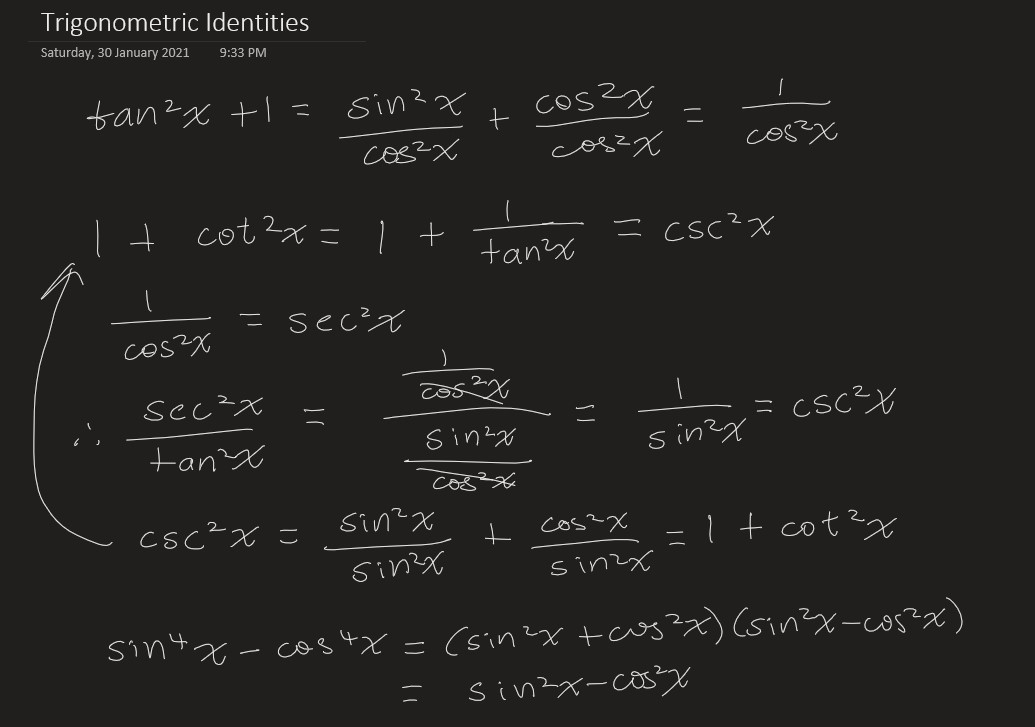 Trigonometric Identities
Saturday, 30 January 2021 9:33 PM
tan²x + 1 = sin²x/cos²x + cos²x/cos²x = 1/cos²x
1 + cot²x = 1 + 1/tan²x = csc²x
1/cos²x = sec²x
∴ sec²x/tan²x = (1/cos²x)/(sin²x/cos²x) = 1/sin²x = csc²x
csc²x = sin²x/sin²x + cos²x/sin²x = 1 + cot²x
sin⁴x - cos⁴x = (sin²x + cos²x)(sin²x - cos²x)
= sin²x - cos²x